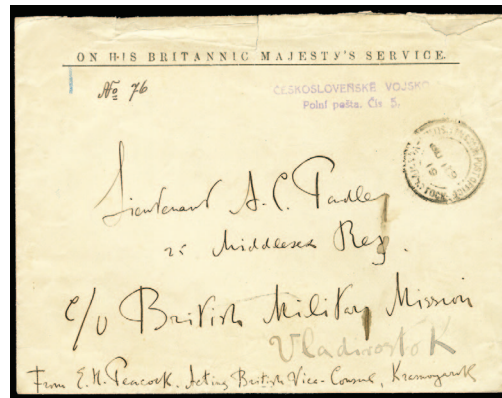 ON HIS BRITANNIC MAJESTY'S SERVICE.
No 76
ČESKOSLOVENSKÉ VOJSKO
Polní pošta. Čís 5.
Lieutenant A. C.
Middlesex Reg.
c/o British Military Mission
Vladivostok
From E. H. Peacock. Acting British Vice-Consul, Krasnoyarsk